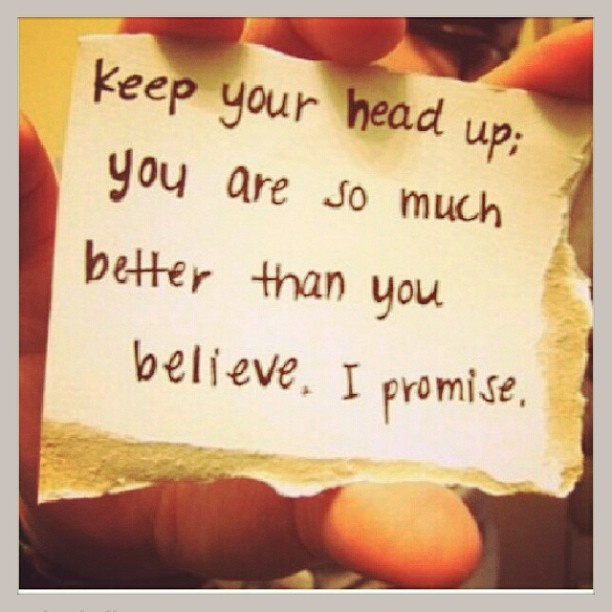 keep your head up;
you are so much
better than you
believe. I promise.